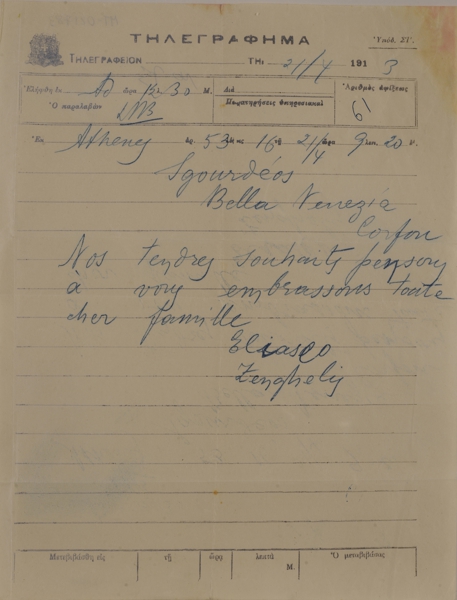 ΤΗΛΕΓΡΑΦΗΜΑ
Ὑπόδ. ΣΤ'.
ΤΗΛΕΓΡΑΦΕΙΟΝ ΤΗι 21/4 1913
Ἐλήφθη ἐκ Ad ὥρα 12.30 Μ.
Ὁ παραλαβών
Διὰ
Παρατηρήσεις ὑπηρεσιακαὶ
Ἀριθμὸς ἀφίξεως
61
Ἐκ Athenes ἀρ. 53 λέξ. 16 τῇ 21/4 ὥρα 9 λεπ. 20 π.
Sgourdéos
Bella Venezia
Corfou
Nos tendres souhaits pensons
à vous embrassons toute
cher famille
Eliasco
Zenghelis
Μετεβιβάσθη εἰς τῇ ὥρᾳ λεπτὰ Μ. Ὁ μεταβιβάσας